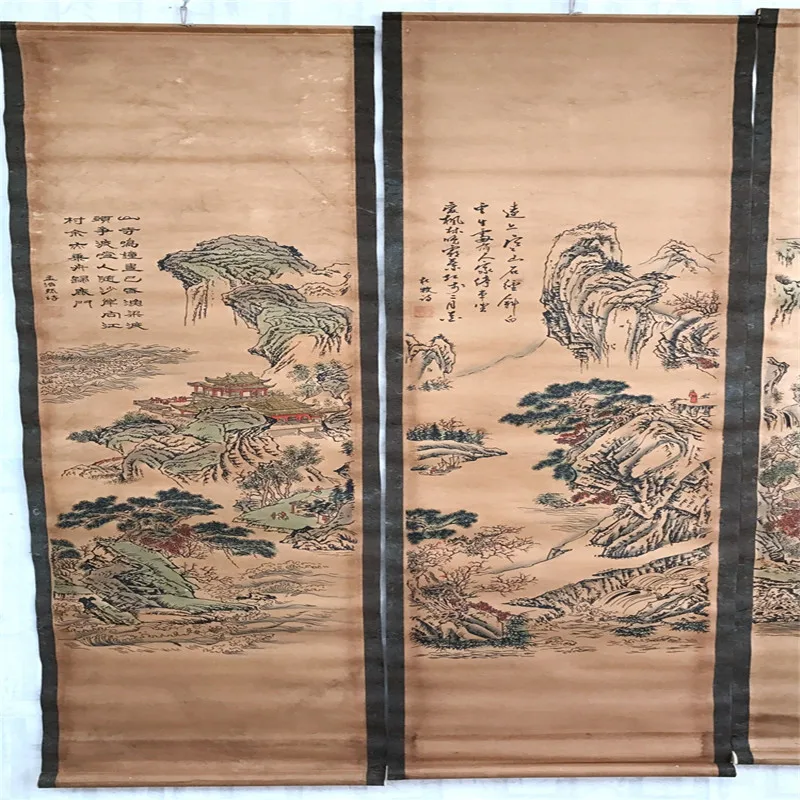 山寺鳴鐘晝已昏漁梁渡
頭爭渡喧人隨沙岸向江
村余亦乘舟歸鹿門
孟浩然詩
遠上寒山石徑斜白
雲生處有人家停車坐
愛楓林晚霜葉紅於二月花
杜牧詩